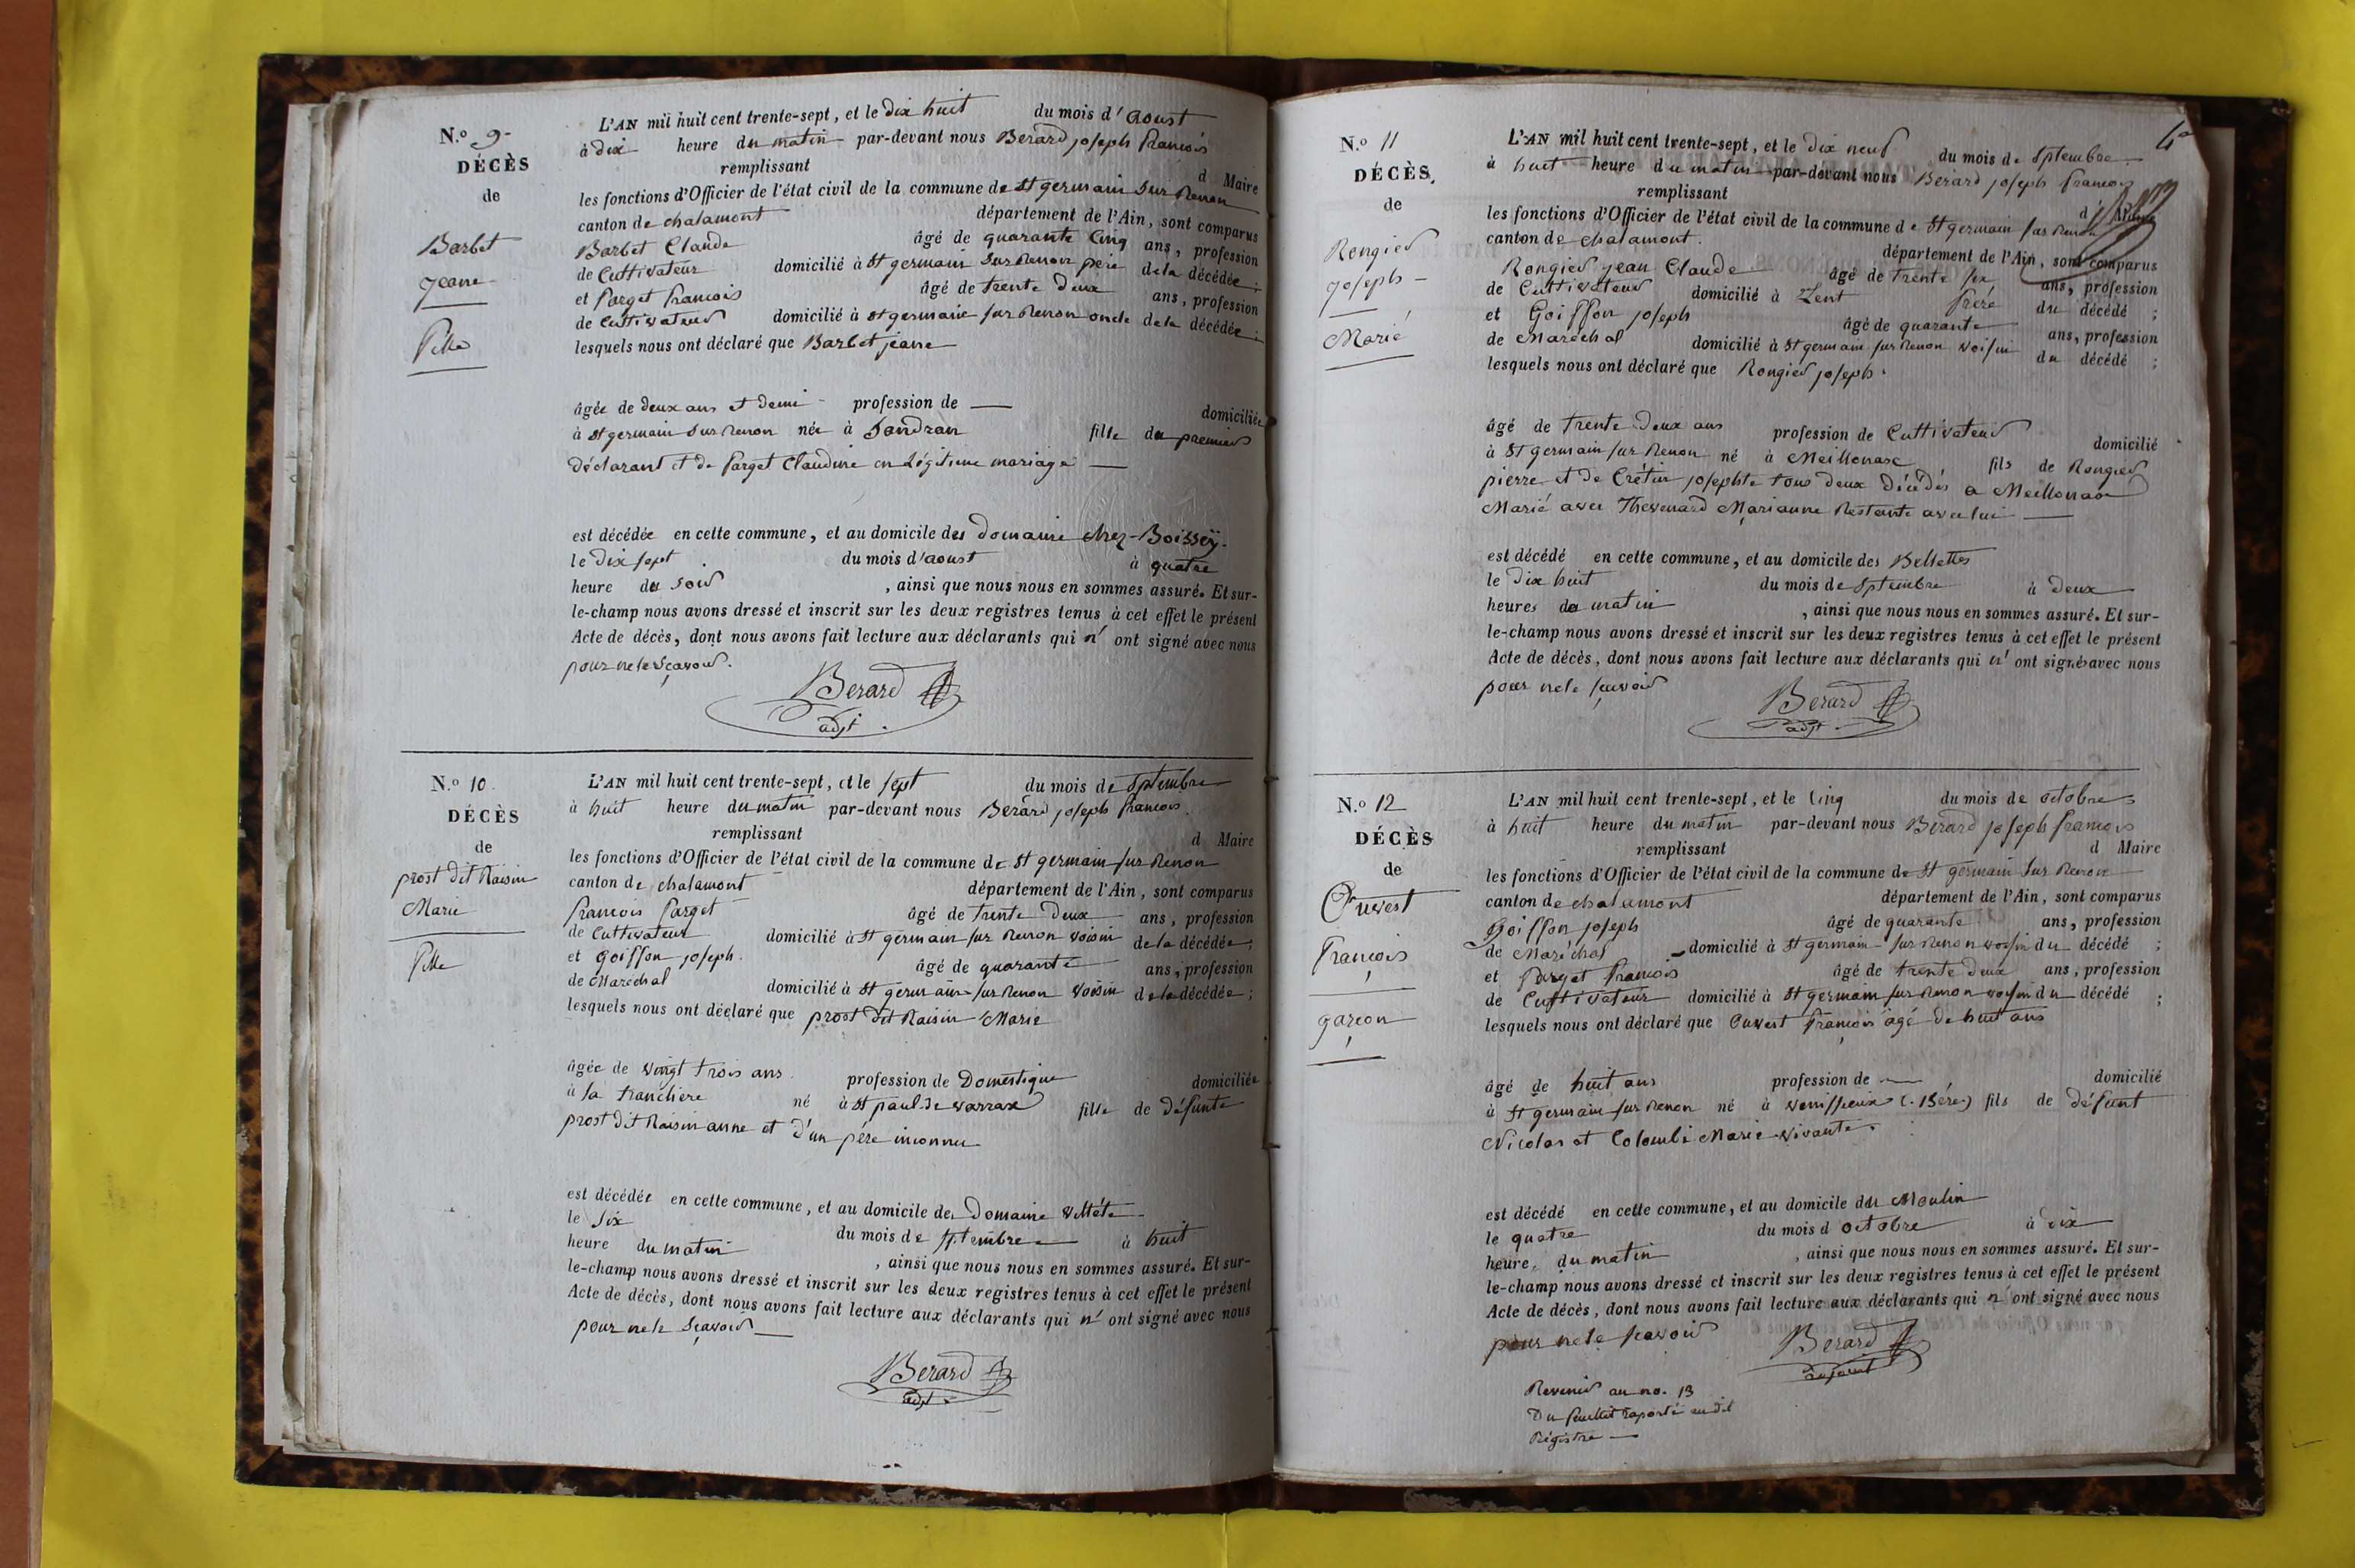 N.o 9
DÉCÈS
de
Barbet
jeane
fille
L'AN mil huit cent trente-sept, et le dix huit du mois d'aoust
à dix heure du matin par-devant nous Berard joseph françois
remplissant d Maire
les fonctions d'Officier de l'état civil de la commune de St germain Sur Renon
canton de chalamont département de l'Ain, sont comparus
Barbet Claude âgé de quarante Cinq ans, profession
de Cultivateur domicilié à St germain Sur Renon père de la décédée ;
et Parget françois âgé de trente deux ans, profession
de Cultivateur domicilié à St germain sur Renon oncle de la décédée ;
lesquels nous ont déclaré que Barbet jeane
âgée de deux ans et demi profession de — domiciliée
à St germain Sur Renon née à Sandran fille du premier
déclarant et de Parget Claudine en Légitime mariage —
est décédée en cette commune, et au domicile des Domaine chez Boissey.
le dix sept du mois d'aoust à quatre
heure du soir , ainsi que nous nous en sommes assuré. Et sur-
le-champ nous avons dressé et inscrit sur les deux registres tenus à cet effet le présent
Acte de décès, dont nous avons fait lecture aux déclarants qui n' ont signé avec nous
pour ne le sçavoir.
Berard
adjt
N.o 10.
DÉCÈS
de
prost dit Raisin
Marie
fille
L'AN mil huit cent trente-sept, et le sept du mois de Sptembre
à huit heure du matin par-devant nous Berard joseph françois.
remplissant d Maire
les fonctions d'Officier de l'état civil de la commune de St germain sur Renon
canton de chalamont département de l'Ain, sont comparus
françois Parget âgé de trente deux ans, profession
de Cultivateur domicilié à St germain sur Renon voisin de la décédée ;
et Goiffon joseph. âgé de quarante ans, profession
de Maréchal domicilié à St germain sur Renon voisin de la décédée ;
lesquels nous ont déclaré que prost dit Raisin Marie
âgée de vingt trois ans. profession de Domestique domiciliée
à la tranchere né à St paul de varrax fille de défunte
prost dit Raisin anne et d'un père inconnu
est décédée en cette commune, et au domicile de Domaine
le six du mois de sptembre à huit
heure du matin , ainsi que nous nous en sommes assuré. Et sur-
le-champ nous avons dressé et inscrit sur les deux registres tenus à cet effet le présent
Acte de décès, dont nous avons fait lecture aux déclarants qui n' ont signé avec nous
pour ne le sçavoir —
Berard
adjt
N.o 11
DÉCÈS
de
Rongier
joseph
Marié
L'AN mil huit cent trente-sept, et le dix neuf du mois de Sptembre
à huit heure du matin par-devant nous Berard joseph françois
remplissant d Maire
les fonctions d'Officier de l'état civil de la commune de St germain sur Renon
canton de chalamont. département de l'Ain, sont comparus
Rongier jean Claude âgé de trente six ans, profession
de Cultivateur domicilié à Lent frère du décédé ;
et Goiffon joseph âgé de quarante ans, profession
de Maréchal domicilié à St germain sur Renon voisin du décédé ;
lesquels nous ont déclaré que Rongier joseph.
âgé de trente deux ans profession de Cultivateur domicilié
à St germain sur Renon né à Meillonax fils de Rongier
pierre et de Crétin josephte tous deux décédés a Meillonax
Marié avec Thevenard Marianne Restante avec lui —
est décédé en cette commune, et au domicile des Bellettes
le dix huit du mois de Sptembre à deux
heures du matin , ainsi que nous nous en sommes assuré. Et sur-
le-champ nous avons dressé et inscrit sur les deux registres tenus à cet effet le présent
Acte de décès, dont nous avons fait lecture aux déclarants qui n' ont signés avec nous
pour ne le sçavoir
Berard
adjt
N.o 12
DÉCÈS
de
Cuvest
françois
garçon
L'AN mil huit cent trente-sept, et le Cinq du mois de octobre
à huit heure du matin par-devant nous Berard joseph françois
remplissant d Maire
les fonctions d'Officier de l'état civil de la commune de St germain Sur Renon
canton de chalamont département de l'Ain, sont comparus
Goiffon joseph âgé de quarante ans, profession
de Maréchal domicilié à St germain sur Renon voisin du décédé ;
et Parget françois âgé de trente deux ans, profession
de Cultivateur domicilié à St germain sur Renon voisin du décédé ;
lesquels nous ont déclaré que Cuvest françois âgé de huit ans
âgé de huit ans profession de — domicilié
à St germain sur Renon né à venissieux (isére) fils de défunt
Nicolas et Colombe Marie vivante.
est décédé en cette commune, et au domicile du Moulin
le quatre du mois d octobre à dix
heure, du matin , ainsi que nous nous en sommes assuré. Et sur-
le-champ nous avons dressé et inscrit sur les deux registres tenus à cet effet le présent
Acte de décès, dont nous avons fait lecture aux déclarants qui n' ont signé avec nous
pour ne le sçavoir
Berard
adjoint
Revenir au no. 13
Du feuillet raporté audit
Régistre —